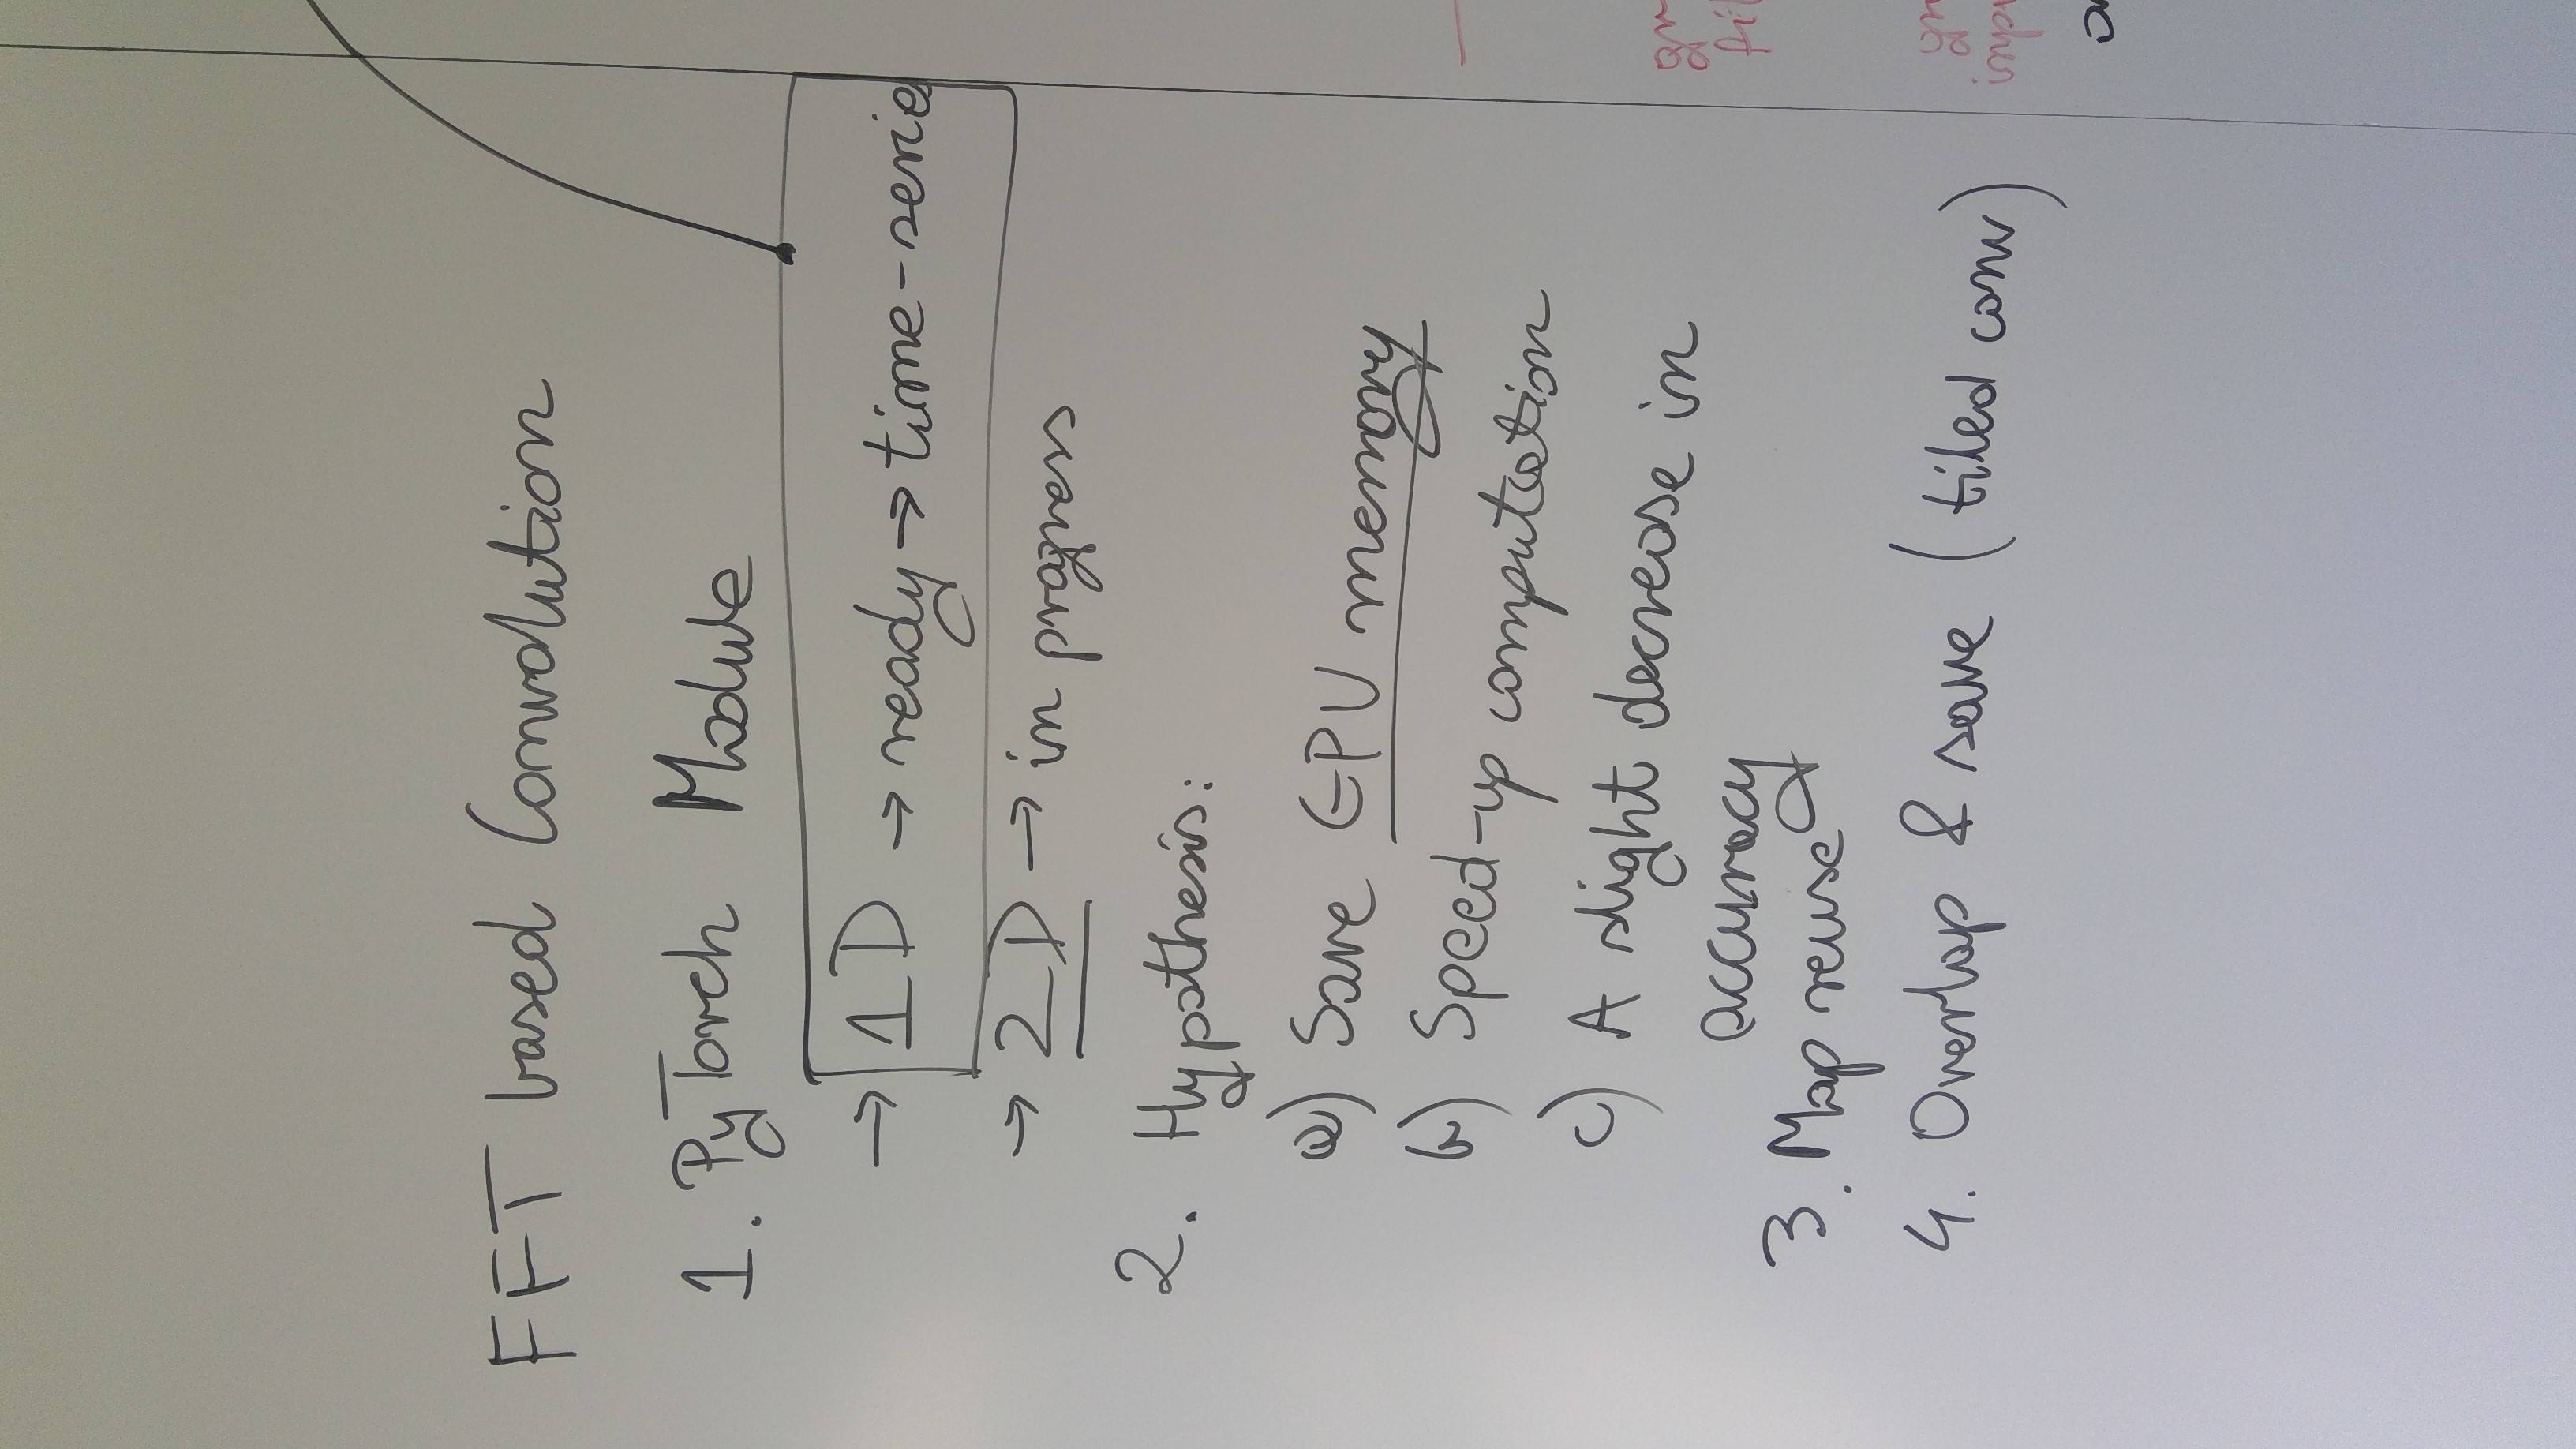 FFT based Convolution
1. PyTorch Module
→ 1D → ready → time-serie
→ 2D → in progress
2. Hypothesis:
a) Save GPU memory
b) Speed-up computation
c) A slight decrease in
accuracy
3. Map reuse
4. Overlap & save (tiled conv)